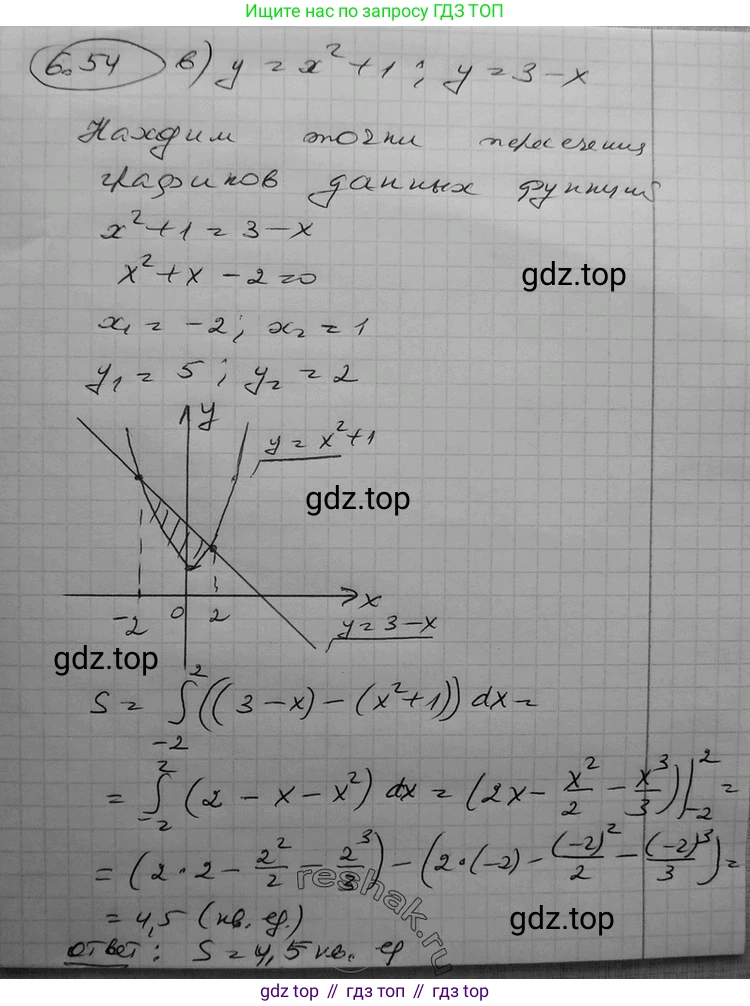 Ищите нас по запросу ГДЗ ТОП
6.54 в) y = x² + 1 ; y = 3 - x
Находим точки пересечения
графиков данных функций
x² + 1 = 3 - x
x² + x - 2 = 0
gdz.top
x₁ = -2; x₂ = 1
y₁ = 5 ; y₂ = 2
y
y = x² + 1
gdz.top
-2 0 2 x
y = 3 - x
gdz.top
S = ∫₋₂² ((3 - x) - (x² + 1)) dx =
= ∫₋₂² (2 - x - x²) dx = (2x - x²/2 - x³/3)|₋₂² =
= (2 · 2 - 2²/2 - 2³/3) - (2 · (-2) - (-2)²/2 - (-2)³/3) =
reshak.ru
= 4,5 (кв. ед.)
gdz.top
ответ: S = 4,5 кв. ед
gdz.top // gdz.top // gdz.top